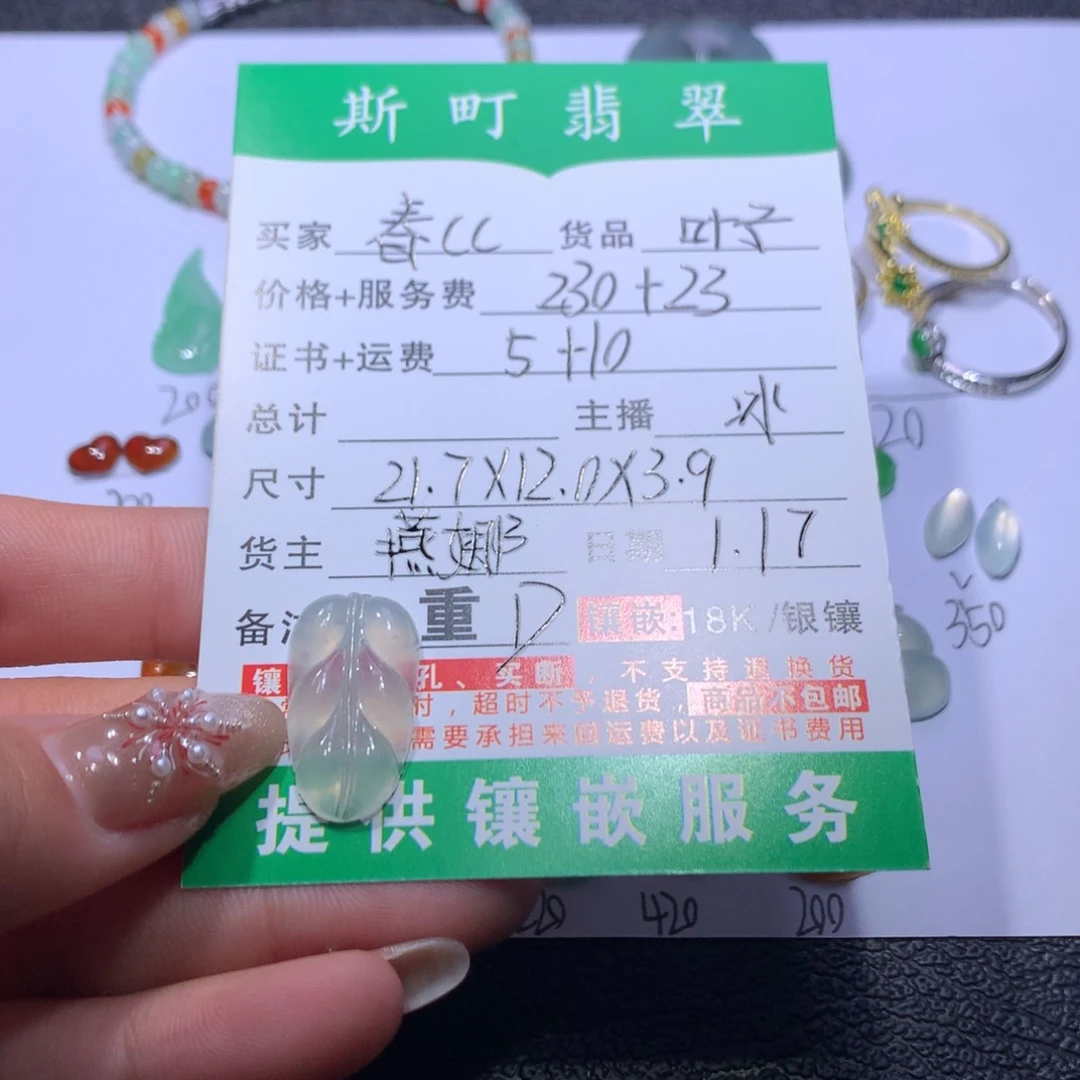 斯町翡翠
买家 春CC 货品 叶子
价格+服务费 230+23
证书+运费 5+10
总计 主播 冰
尺寸 21.7X12.0X3.9
货主 燕娜3 日期 1.17
备 重 D 镶嵌:18K/银镶
镶 孔、买断,不支持退换货
时,超时不予退货,商品不包邮
需要承担来回运费以及证书费用
提供镶嵌服务
20
350
420
200